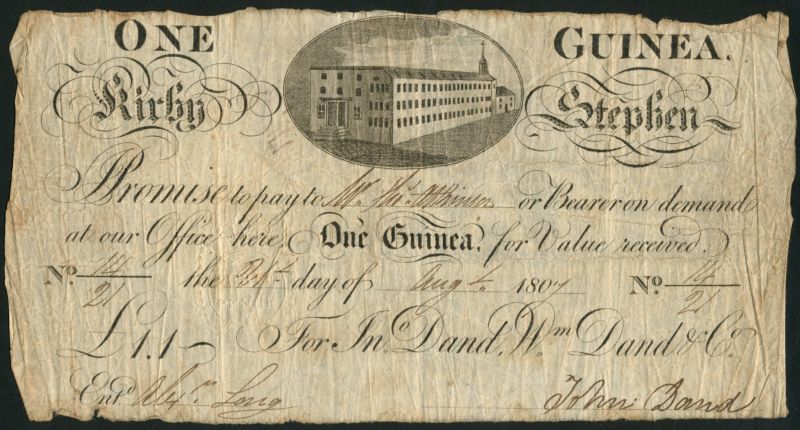 ONE GUINEA.
Kirby Stephen
I Promise to pay to Mr. Thos. Atkinson or Bearer on demand
at our Office here, One Guinea, for Value received.
No. 14/21 the 31st day of Augt. 1807 No. 14/21
£1,1- For Jno. Dand, Wm. Dand & Co.
Entd. Alexr. Long John Dand